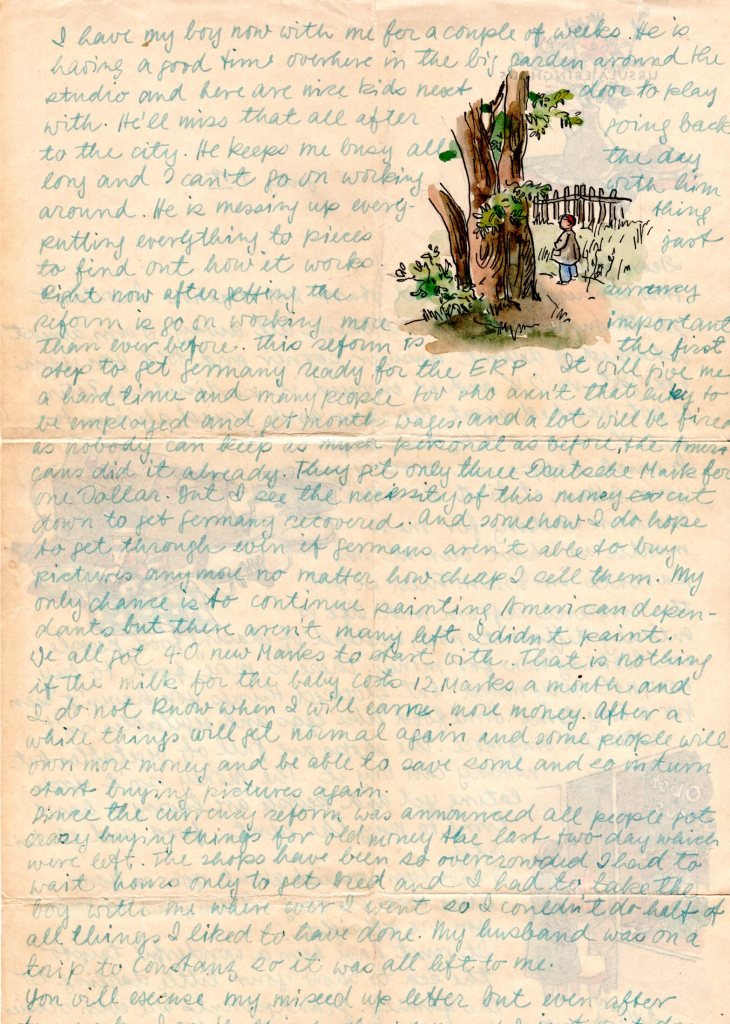 I have my boy now with me for a couple of weeks. He is
having a good time overhere in the big garden around the
studio and here are nice kids next door to play
with. He'll miss that all after going back
to the city. He keeps me busy all the day
long and I can't go on working with him
around. He is messing up every- thing
putting everything to pieces just
to find out how it works.
Right now after getting the currency
reform is go on working more important
than ever before. This reform is the first
step to get Germany ready for the ERP. It will give me
a hard time and many people too who aren't that lucky to
be employed and get month wages, and a lot will be fired
as nobody can keep as much personal as before, the Ameri
cans did it already. They get only three Deutsche Mark for
one Dollar. But I see the necissity of this money cut
down to get Germany recovered. And somehow I do hope
to get through even if Germans aren't able to buy
pictures anymore no matter how cheap I sell them. My
only chance is to continue painting American depen-
dants but there aren't many left I didn't paint.
We all got 40 new Marks to start with. That is nothing
if the milk for the baby costs 12 Marks a month and
I do not know when I will earn more money. After a
while things will get normal again and some people will
own more money and be able to save some and so in turn
start buying pictures again.
Since the currency reform was announced all people got
crazy buying things for old money the last two day which
were left. The shops have been so overcrowded I had to
wait hours only to get bred and I had to take the
boy with me where ever I went so I couldn't do half of
all things I liked to have done. My husband was on a
trip to Constanz so it was all left to me.
You will excuse my mixed up letter but even after